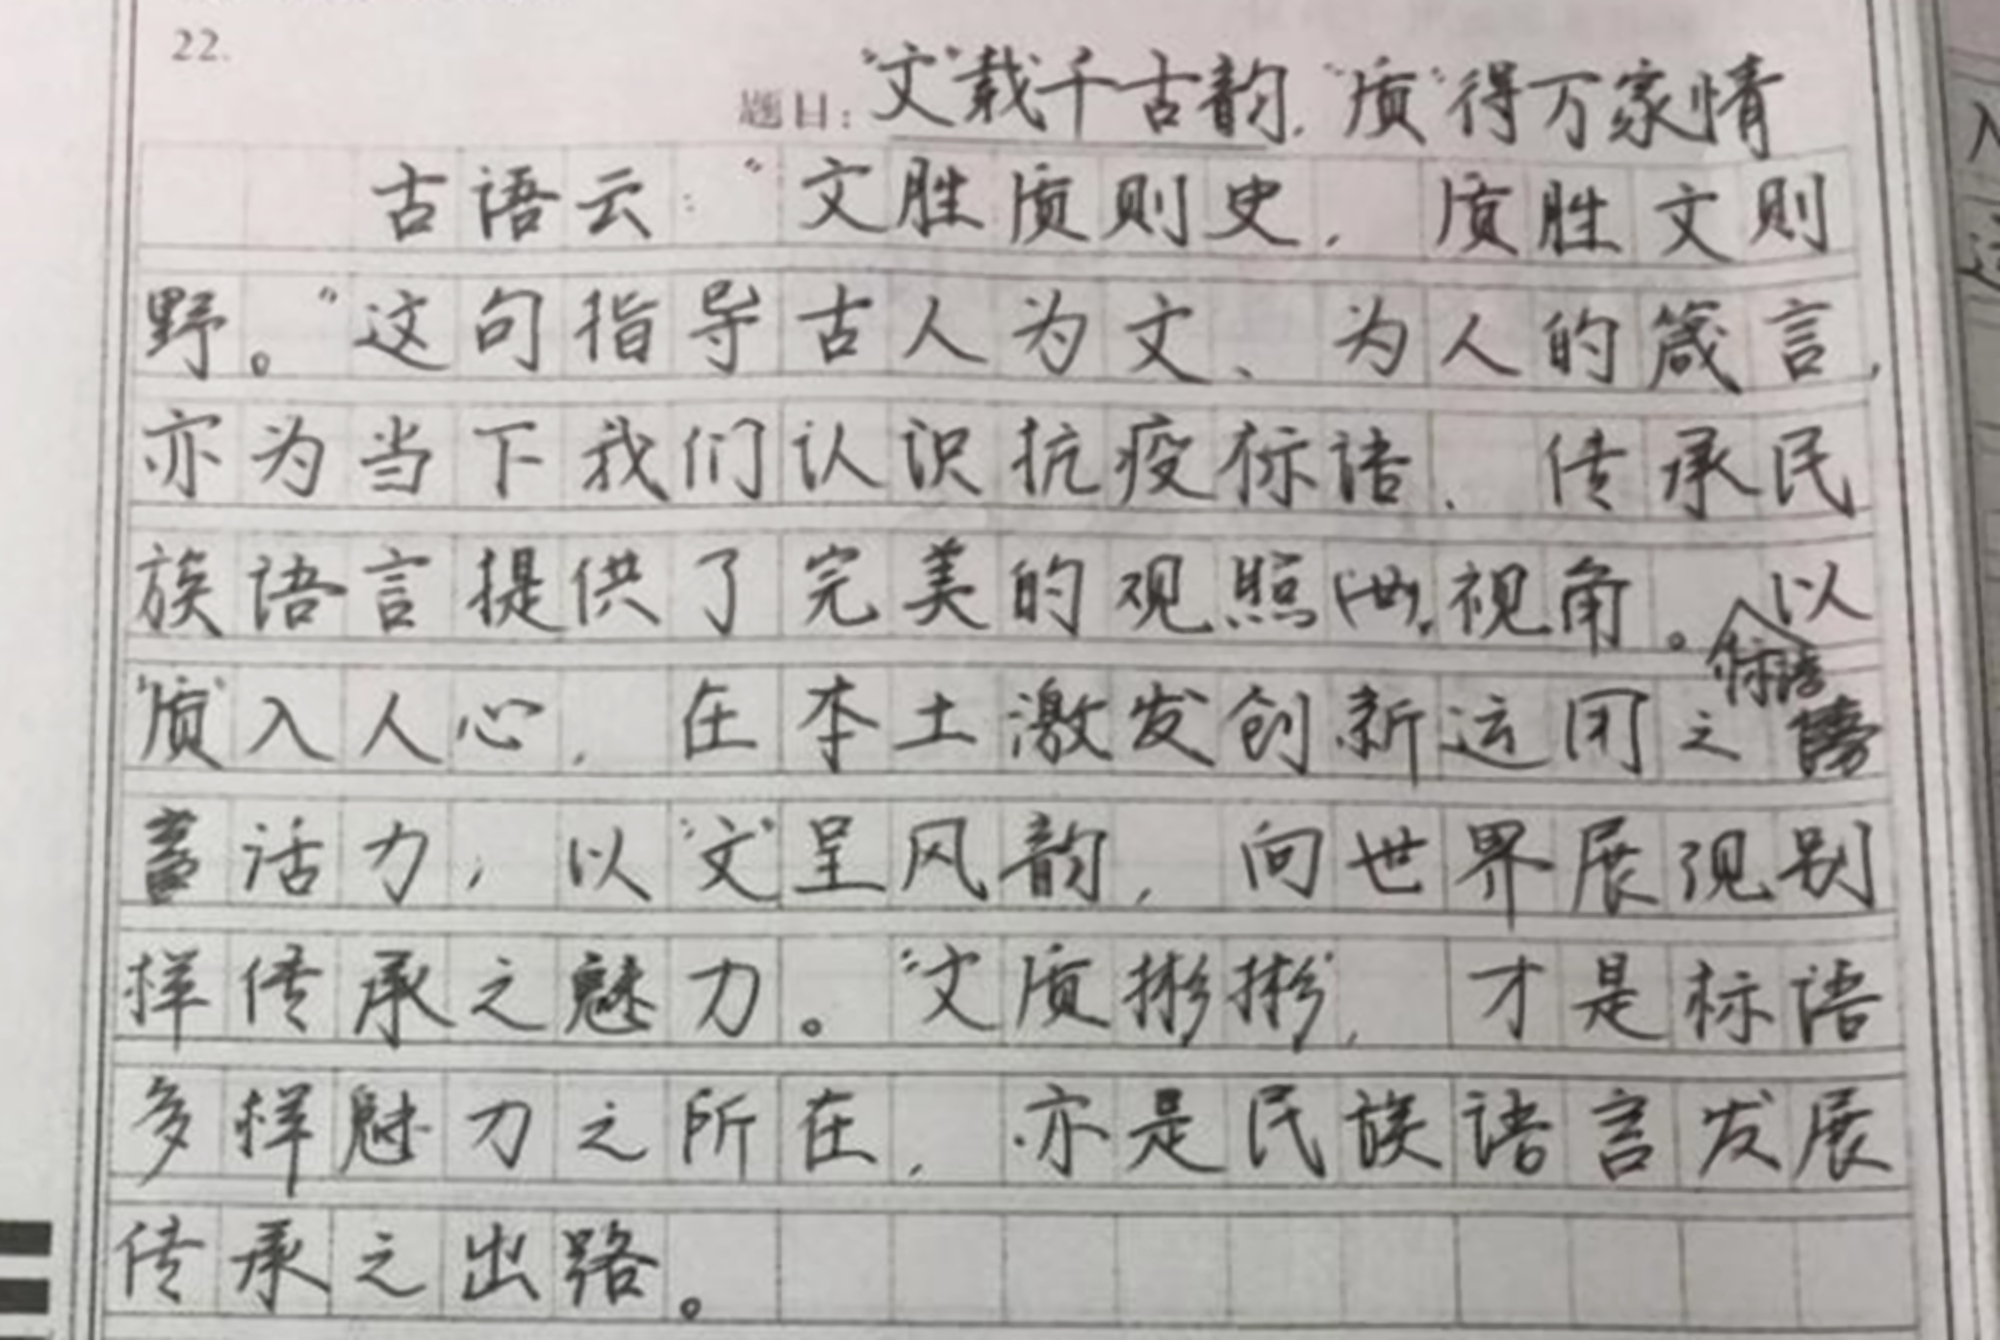 22.
题目：“文”载千古韵，“质”得万家情
古语云：“文胜质则史，质胜文则
野。”这句指导古人为文、为人的箴言，
亦为当下我们认识抗疫标语，传承民
族语言提供了完美的观照视角。标语以
“质”入人心，在本土激发创新运用之
活力，以“文”呈风韵，向世界展现别
样传承之魅力。“文质彬彬”，才是标语
多样魅力之所在，亦是民族语言发展
传承之出路。
入